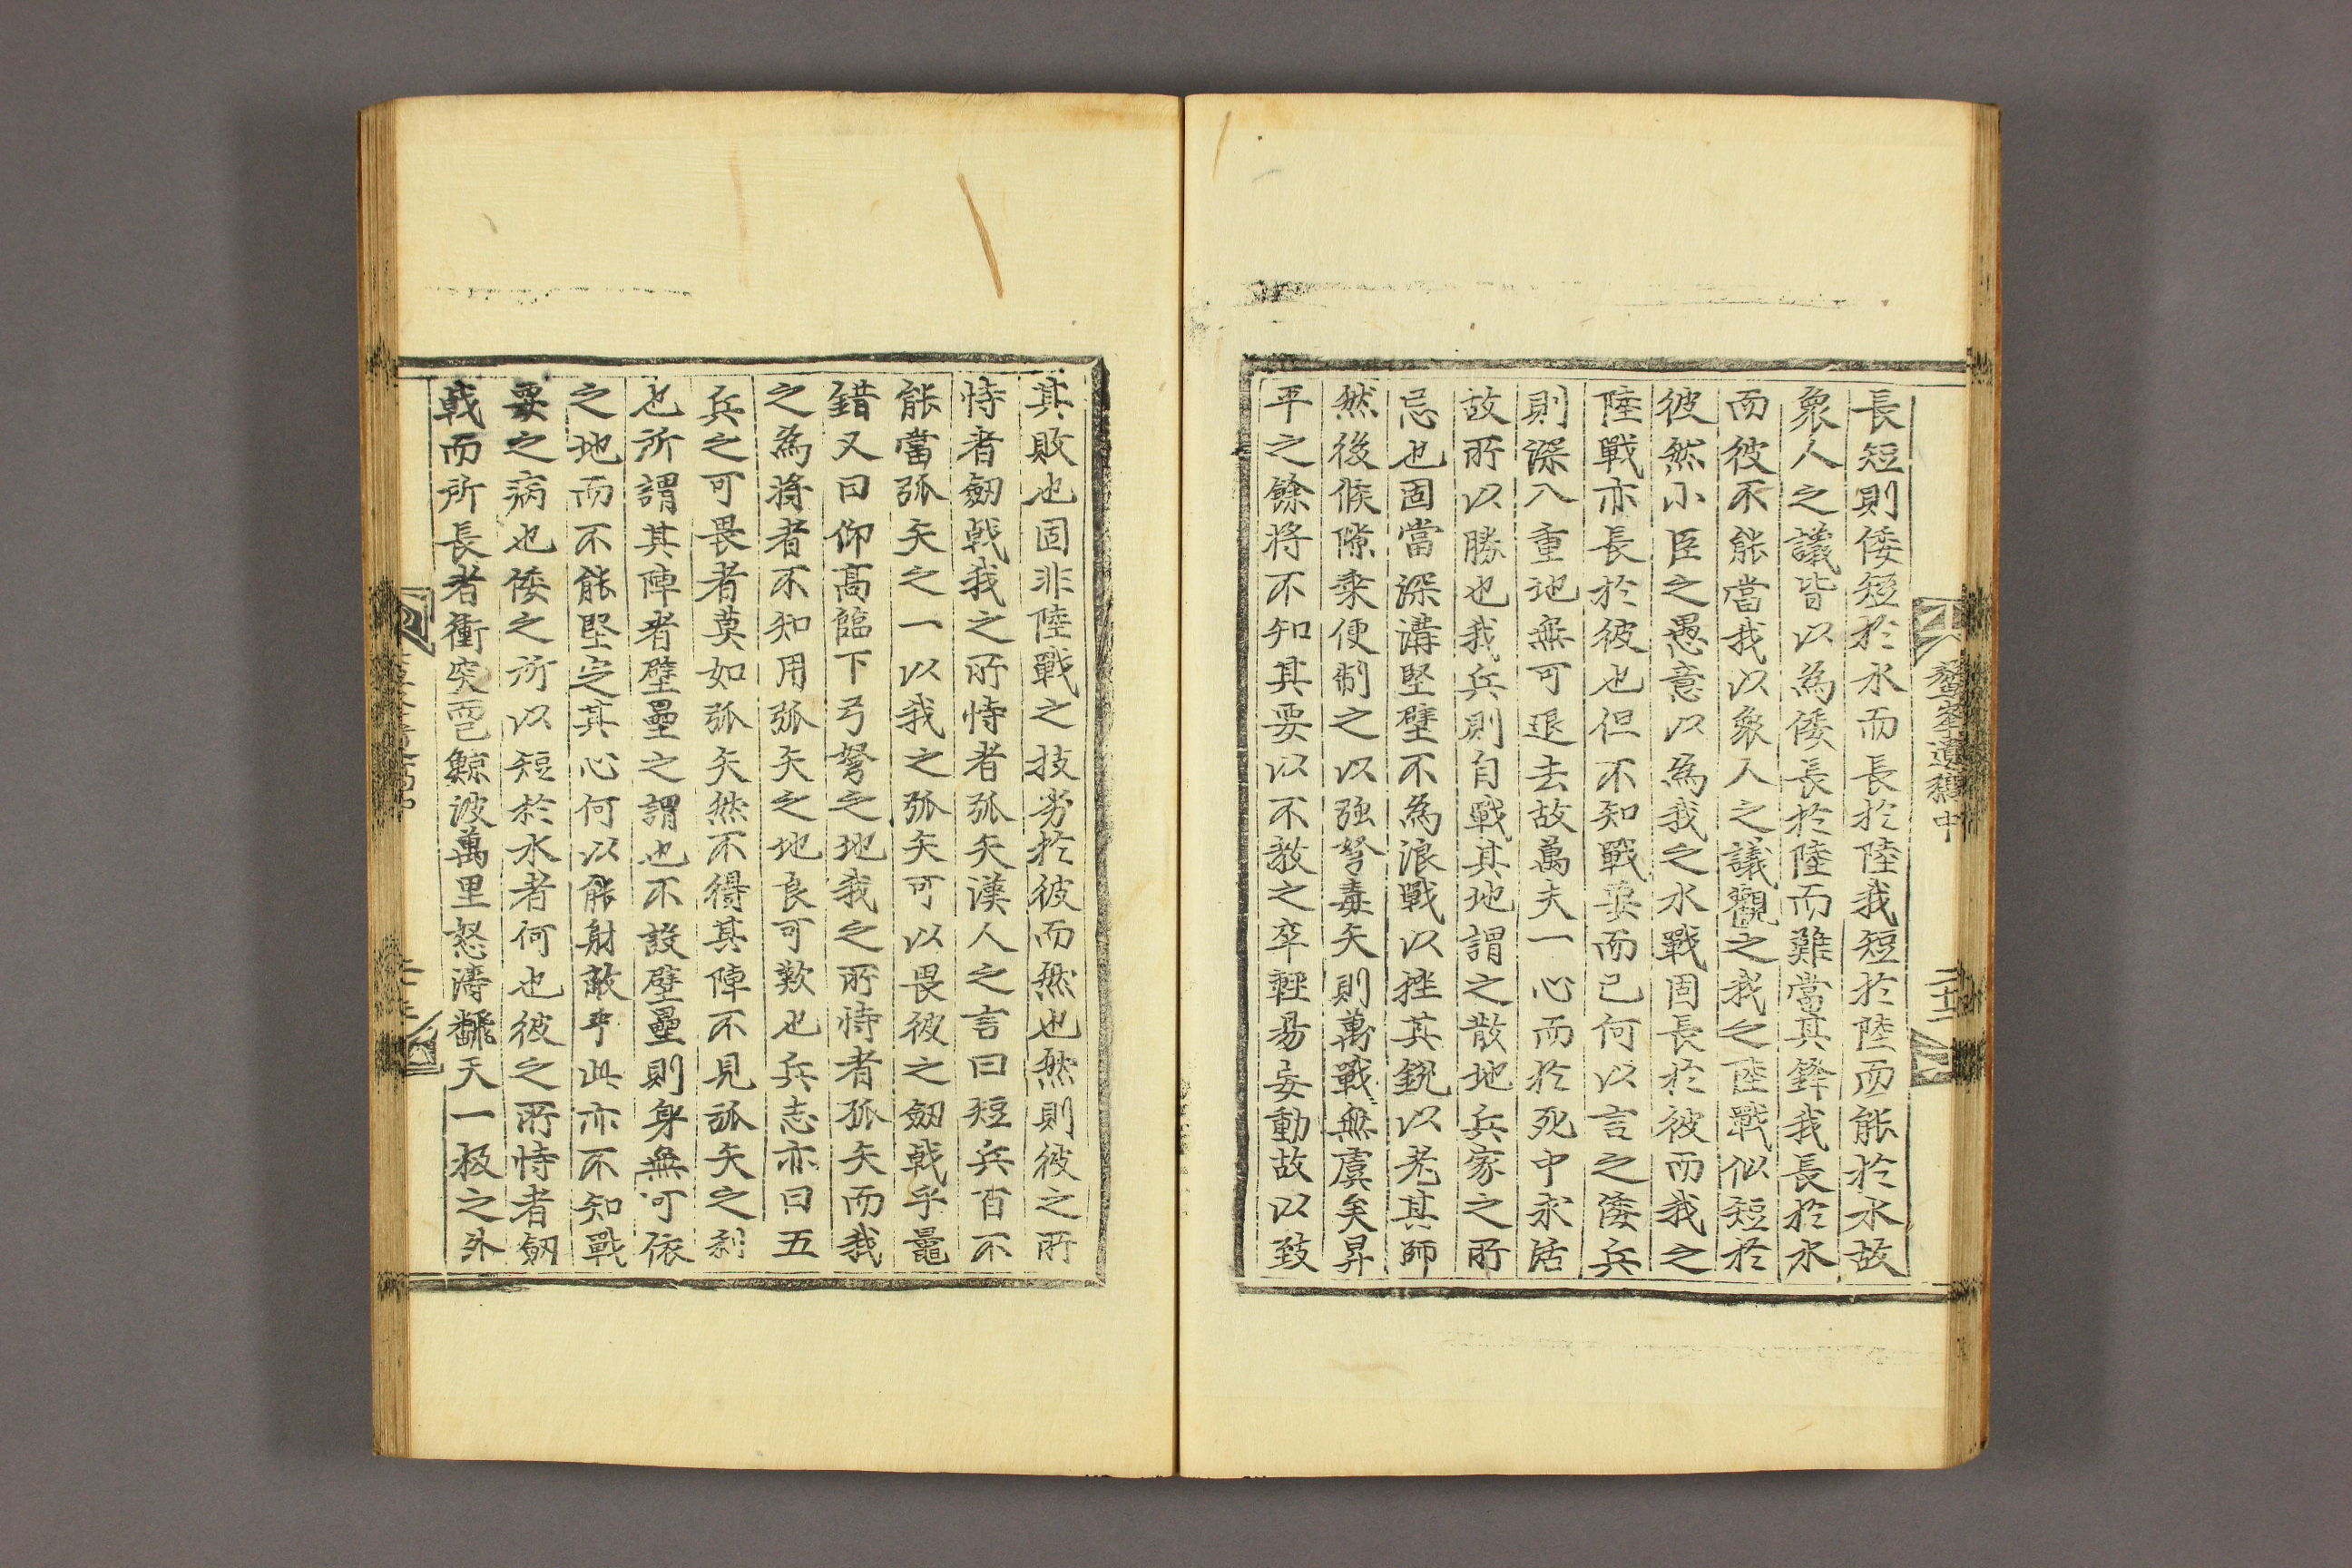 長短則倭短於水而長於陸我短於陸而能於水故
衆人之議皆以爲倭長於陸而難當其鋒我長於水
而彼不能當我以衆人之議觀之我之陸戰似短於
彼然小臣之愚意以爲我之水戰固長於彼而我之
陸戰亦長於彼也但不知戰要而已何以言之倭兵
則深入重地無可退去故萬夫一心而於死中求活
故所以勝也我兵則自戰其地謂之散地兵家之所
忌也固當深溝堅壁不爲浪戰以挫其銳以老其師
然後候隙乘便制之以强弩毒矢則萬戰無虞矣昇
平之餘將不知其要以不教之卒輕易妄動故以致
其敗也固非陸戰之技劣於彼而然也然則彼之所
恃者劒戟我之所恃者弧矢漢人之言曰短兵百不
能當弧矢之一以我之弧矢可以畏彼之劒戟乎鼂
錯又曰仰高臨下弓弩之地我之所恃者弧矢而我
之爲將者不知用弧矢之地良可歎也兵志亦曰五
兵之可畏者莫如弧矢然不得其陣不見弧矢之利
也所謂其陣者壁壘之謂也不設壁壘則身無可依
之地而不能堅定其心何以能射敵乎此亦不知戰
要之病也倭之所以短於水者何也彼之所恃者劒
戟而所長者衝突而已鯨波萬里怒濤飜天一极之外
鰲峯遺稿中
二十二